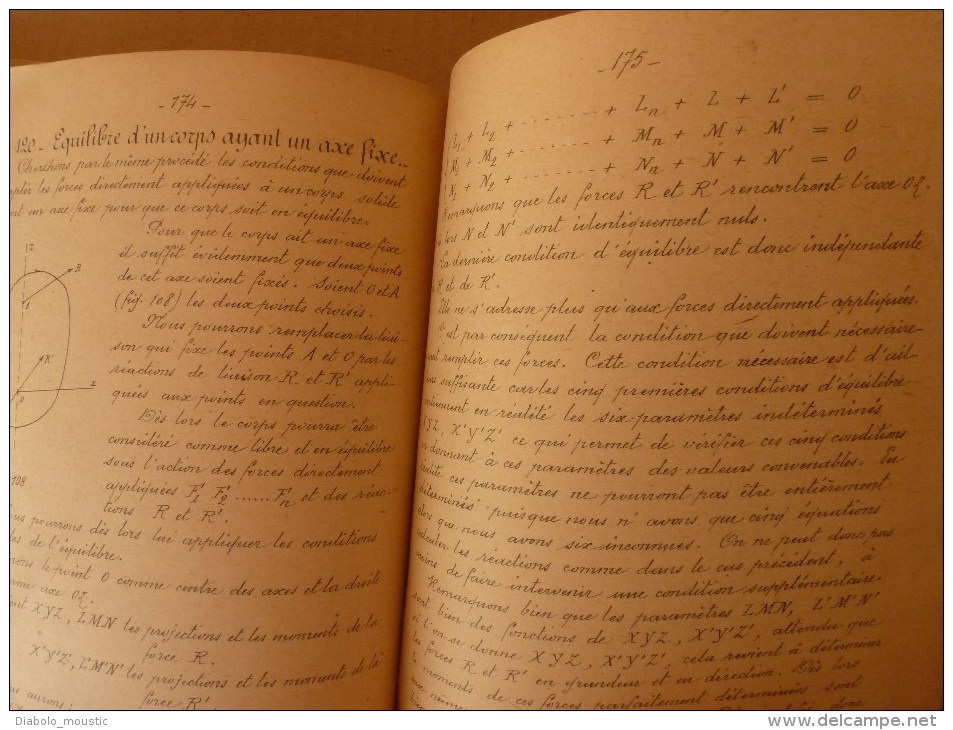 - 174 -
120 - Equilibre d'un corps ayant un axe fixe..
Cherchons par le même procédé les conditions que doivent
les forces directement appliquées à un corps solide
un axe fixe pour que ce corps soit en équilibre.
Pour que le corps ait un axe fixe
il suffit évidemment que deux points
de cet axe soient fixés. Soient O et A
(fig 108) les deux points choisis.
Nous pourrons remplacer la liai-
son qui fixe les points A et O par les
réactions de liaison R et R' appli-
quées aux points en question.
Dès lors le corps pourra être
considéré comme libre et en équilibre
sous l'action des forces directement
appliquées F1 F2 ...... Fn et des réac-
tions R et R'.
z
R
R'
x
108
pourrons dès lors lui appliquer les conditions
de l'équilibre.
le point O comme centre des axes et la droite
axe OZ.
XYZ, LMN les projections et les moments de la
force R.
X'Y'Z', L'M'N' les projections et les moments de la
force R'.
aurons :
- 175 -
L1 + L2 + ........... + Ln + L + L' = 0
M1 + M2 + ........... + Mn + M + M' = 0
N1 + N2 + ........... + Nn + N + N' = 0
Remarquons que les forces R et R' rencontrent l'axe OZ.
lors N et N' sont identiquement nuls.
La dernière condition d'équilibre est donc indépendante
R et de R'.
Elle ne s'adresse plus qu'aux forces directement appliquées.
C'est par conséquent la condition que doivent nécessaire-
remplir ces forces. Cette condition nécessaire est d'ail-
suffisante car les cinq premières conditions d'équilibre
en réalité les six paramètres indéterminés
XYZ, X'Y'Z' ce qui permet de vérifier ces cinq conditions
donnant à ces paramètres des valeurs convenables. En
réalité ces paramètres ne pourront pas être entièrement
déterminés puisque nous n'avons que cinq équations
alors que nous avons six inconnues. On ne peut donc pas
calculer les réactions comme dans le cas précédent, à
moins de faire intervenir une condition supplémentaire.
Remarquons bien que les paramètres LMN, L'M'N'
sont bien des fonctions de XYZ, X'Y'Z', attendu que
si l'on se donne XYZ, X'Y'Z', cela revient à déterminer
les forces R et R' en grandeur et en direction. Dès lors
les moments de ces forces parfaitement déterminés sont
donc
Diabolo_moustic
www.delcampe.net